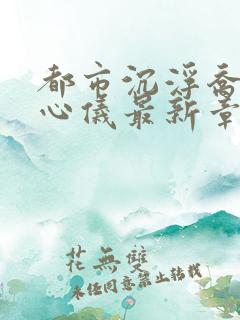 都市沉浮乔
心儀最新章
花無雙
未经同意禁止转载